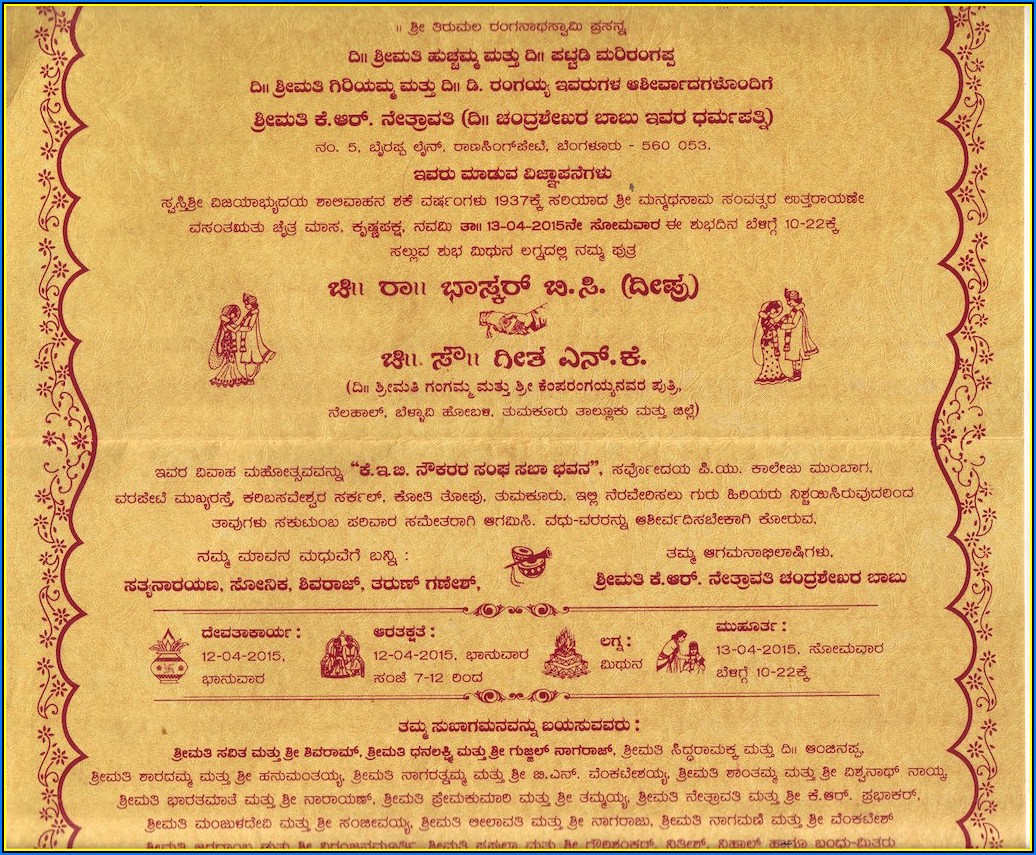 ॥ ಶ್ರೀ ತಿರುಮಲ ರಂಗನಾಥಸ್ವಾಮಿ ಪ್ರಸನ್ನ
ದಿ॥ ಶ್ರೀಮತಿ ಹುಚ್ಚಮ್ಮ ಮತ್ತು ದಿ॥ ಪಟ್ಟಡಿ ಮರಿರಂಗಪ್ಪ
ದಿ॥ ಶ್ರೀಮತಿ ಗಿರಿಯಮ್ಮ ಮತ್ತು ದಿ॥ ಡಿ. ರಂಗಯ್ಯ ಇವರುಗಳ ಆಶೀರ್ವಾದಗಳೊಂದಿಗೆ
ಶ್ರೀಮತಿ ಕೆ.ಆರ್. ನೇತ್ರಾವತಿ (ದಿ॥ ಚಂದ್ರಶೇಖರ ಬಾಬು ಇವರ ಧರ್ಮಪತ್ನಿ)
ನಂ. 5, ಬೈರಪ್ಪ ಲೈನ್, ರಾಣಸಿಂಗ್‌ಪೇಟೆ, ಬೆಂಗಳೂರು - 560 053.
ಇವರು ಮಾಡುವ ವಿಜ್ಞಾಪನೆಗಳು
ಸ್ವಸ್ತಿಶ್ರೀ ವಿಜಯಾಭ್ಯುದಯ ಶಾಲಿವಾಹನ ಶಕೆ ವರ್ಷಂಗಳು 1937ಕ್ಕೆ ಸರಿಯಾದ ಶ್ರೀ ಮನ್ಮಥನಾಮ ಸಂವತ್ಸರ ಉತ್ತರಾಯಣೇ
ವಸಂತಋತು ಚೈತ್ರ ಮಾಸ, ಕೃಷ್ಣಪಕ್ಷ, ನವಮಿ ತಾ॥ 13-04-2015ನೇ ಸೋಮವಾರ ಈ ಶುಭದಿನ ಬೆಳಿಗ್ಗೆ 10-22ಕ್ಕೆ
ಸಲ್ಲುವ ಶುಭ ಮಿಥುನ ಲಗ್ನದಲ್ಲಿ ನಮ್ಮ ಪುತ್ರ
ಚಿ॥ ರಾ॥ ಭಾಸ್ಕರ್ ಬಿ.ಸಿ. (ದೀಪು)
ಚಿ॥. ಸೌ॥ ಗೀತ ಎನ್.ಕೆ.
(ದಿ॥ ಶ್ರೀಮತಿ ಗಂಗಮ್ಮ ಮತ್ತು ಶ್ರೀ ಕೆಂಪರಂಗಯ್ಯನವರ ಪುತ್ರಿ,
ನೆಲಹಾಲ್, ಬೆಳ್ಳಾವಿ ಹೋಬಳಿ, ತುಮಕೂರು ತಾಲ್ಲೂಕು ಮತ್ತು ಜಿಲ್ಲೆ)
ಇವರ ವಿವಾಹ ಮಹೋತ್ಸವವನ್ನು “ಕೆ.ಇ.ಬಿ. ನೌಕರರ ಸಂಘ ಸಬಾ ಭವನ”, ಸರ್ವೋದಯ ಪಿ.ಯು. ಕಾಲೇಜು ಮುಂಬಾಗ,
ವರಪೇಟೆ ಮುಖ್ಯರಸ್ತೆ, ಕರಿಬಸವೇಶ್ವರ ಸರ್ಕಲ್, ಕೋತಿ ತೋಪು, ತುಮಕೂರು, ಇಲ್ಲಿ ನೆರವೇರಿಸಲು ಗುರು ಹಿರಿಯರು ನಿಶ್ಚಯಿಸಿರುವುದರಿಂದ
ತಾವುಗಳು ಸಕುಟುಂಬ ಪರಿವಾರ ಸಮೇತರಾಗಿ ಆಗಮಿಸಿ. ವಧು-ವರರನ್ನು ಆಶೀರ್ವದಿಸಬೇಕಾಗಿ ಕೋರುವ,
ನಮ್ಮ ಮಾವನ ಮಧುವೆಗೆ ಬನ್ನಿ :
ಸತ್ಯನಾರಾಯಣ, ಸೋನಿಕ, ಶಿವರಾಜ್, ತರುಣ್ ಗಣೇಶ್,
ತಮ್ಮ ಆಗಮನಾಭಿಲಾಷಿಗಳು,
ಶ್ರೀಮತಿ ಕೆ.ಆರ್. ನೇತ್ರಾವತಿ ಚಂದ್ರಶೇಖರ ಬಾಬು
ದೇವತಾಕಾರ್ಯ :
12-04-2015,
ಭಾನುವಾರ
ಆರತಕ್ಷತೆ :
12-04-2015, ಭಾನುವಾರ
ಸಂಜೆ 7-12 ರಿಂದ
ಲಗ್ನ :
ಮಿಥುನ
ಮುಹೂರ್ತ :
13-04-2015, ಸೋಮವಾರ
ಬೆಳಿಗ್ಗೆ 10-22ಕ್ಕೆ
ತಮ್ಮ ಸುಖಾಗಮನವನ್ನು ಬಯಸುವವರು :
ಶ್ರೀಮತಿ ಸವಿತ ಮತ್ತು ಶ್ರೀ ಶಿವರಾಮ್, ಶ್ರೀಮತಿ ಧನಲಕ್ಷ್ಮಿ ಮತ್ತು ಶ್ರೀ ಗುಜ್ಜಲ್ ನಾಗರಾಜ್, ಶ್ರೀಮತಿ ಸಿದ್ಧರಾಮಕ್ಕ ಮತ್ತು ದಿ॥ ಆಂಜಿನಪ್ಪ,
ಶ್ರೀಮತಿ ಶಾರದಮ್ಮ ಮತ್ತು ಶ್ರೀ ಹನುಮಂತಯ್ಯ, ಶ್ರೀಮತಿ ನಾಗರತ್ನಮ್ಮ ಮತ್ತು ಶ್ರೀ ಬಿ.ಎನ್. ವೆಂಕಟೇಶಯ್ಯ, ಶ್ರೀಮತಿ ಶಾಂತಮ್ಮ ಮತ್ತು ಶ್ರೀ ವಿಶ್ವನಾಥ್ ನಾಯ್ಕ,
ಶ್ರೀಮತಿ ಭಾರತಮಾತೆ ಮತ್ತು ಶ್ರೀ ನಾರಾಯಣ್, ಶ್ರೀಮತಿ ಪ್ರೇಮಕುಮಾರಿ ಮತ್ತು ಶ್ರೀ ತಮ್ಮಯ್ಯ, ಶ್ರೀಮತಿ ನೇತ್ರಾವತಿ ಮತ್ತು ಶ್ರೀ ಕೆ.ಆರ್. ಪ್ರಭಾಕರ್,
ಶ್ರೀಮತಿ ಮಂಜುಳದೇವಿ ಮತ್ತು ಶ್ರೀ ಸಂಜೀವಯ್ಯ, ಶ್ರೀಮತಿ ಲೀಲಾವತಿ ಮತ್ತು ಶ್ರೀ ನಾಗರಾಜು, ಶ್ರೀಮತಿ ನಾಗಮಣಿ ಮತ್ತು ಶ್ರೀ ವೆಂಕಟೇಶ್